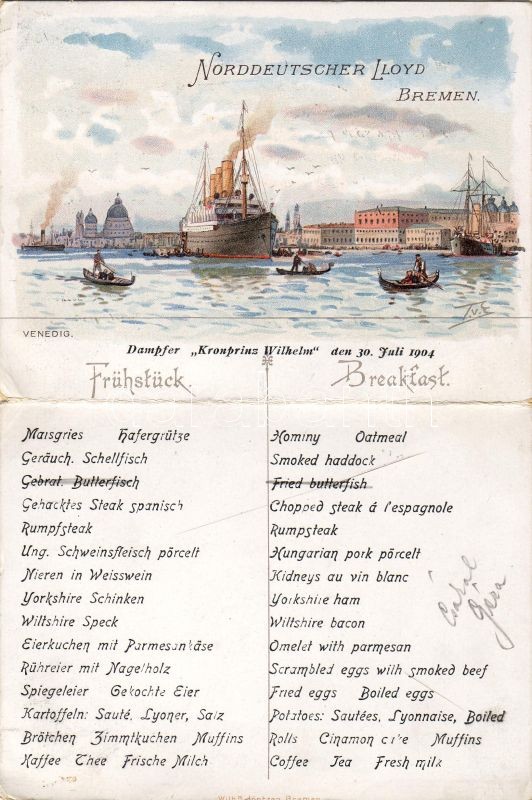 NORDDEUTSCHER LLOYD
BREMEN.
VENEDIG.
Dampfer „Kronprinz Wilhelm" den 30. Juli 1904
Frühstück.
Maisgries Hafergrütze
Geräuch. Schellfisch
Gebrat. Butterfisch
Gehacktes Steak spanisch
Rumpfsteak
Ung. Schweinsfleisch pörcelt
Nieren in Weisswein
Yorkshire Schinken
Wiltshire Speck
Eierkuchen mit Parmesankäse
Rühreier mit Nagelholz
Spiegeleier Gekochte Eier
Kartoffeln: Sauté, Lyoner, Salz
Brötchen Zimmtkuchen Muffins
Kaffee Thee Frische Milch
Breakfast.
Hominy Oatmeal
Smoked haddock
Fried butterfish
Chopped steak á l'espagnole
Rumpsteak
Hungarian pork pörcelt
Kidneys au vin blanc
Yorkshire ham
Wiltshire bacon
Omelet with parmesan
Scrambled eggs with smoked beef
Fried eggs Boiled eggs
Potatoes: Sautées, Lyonnaise, Boiled
Rolls Cinamon cake Muffins
Coffee Tea Fresh milk
Bremen